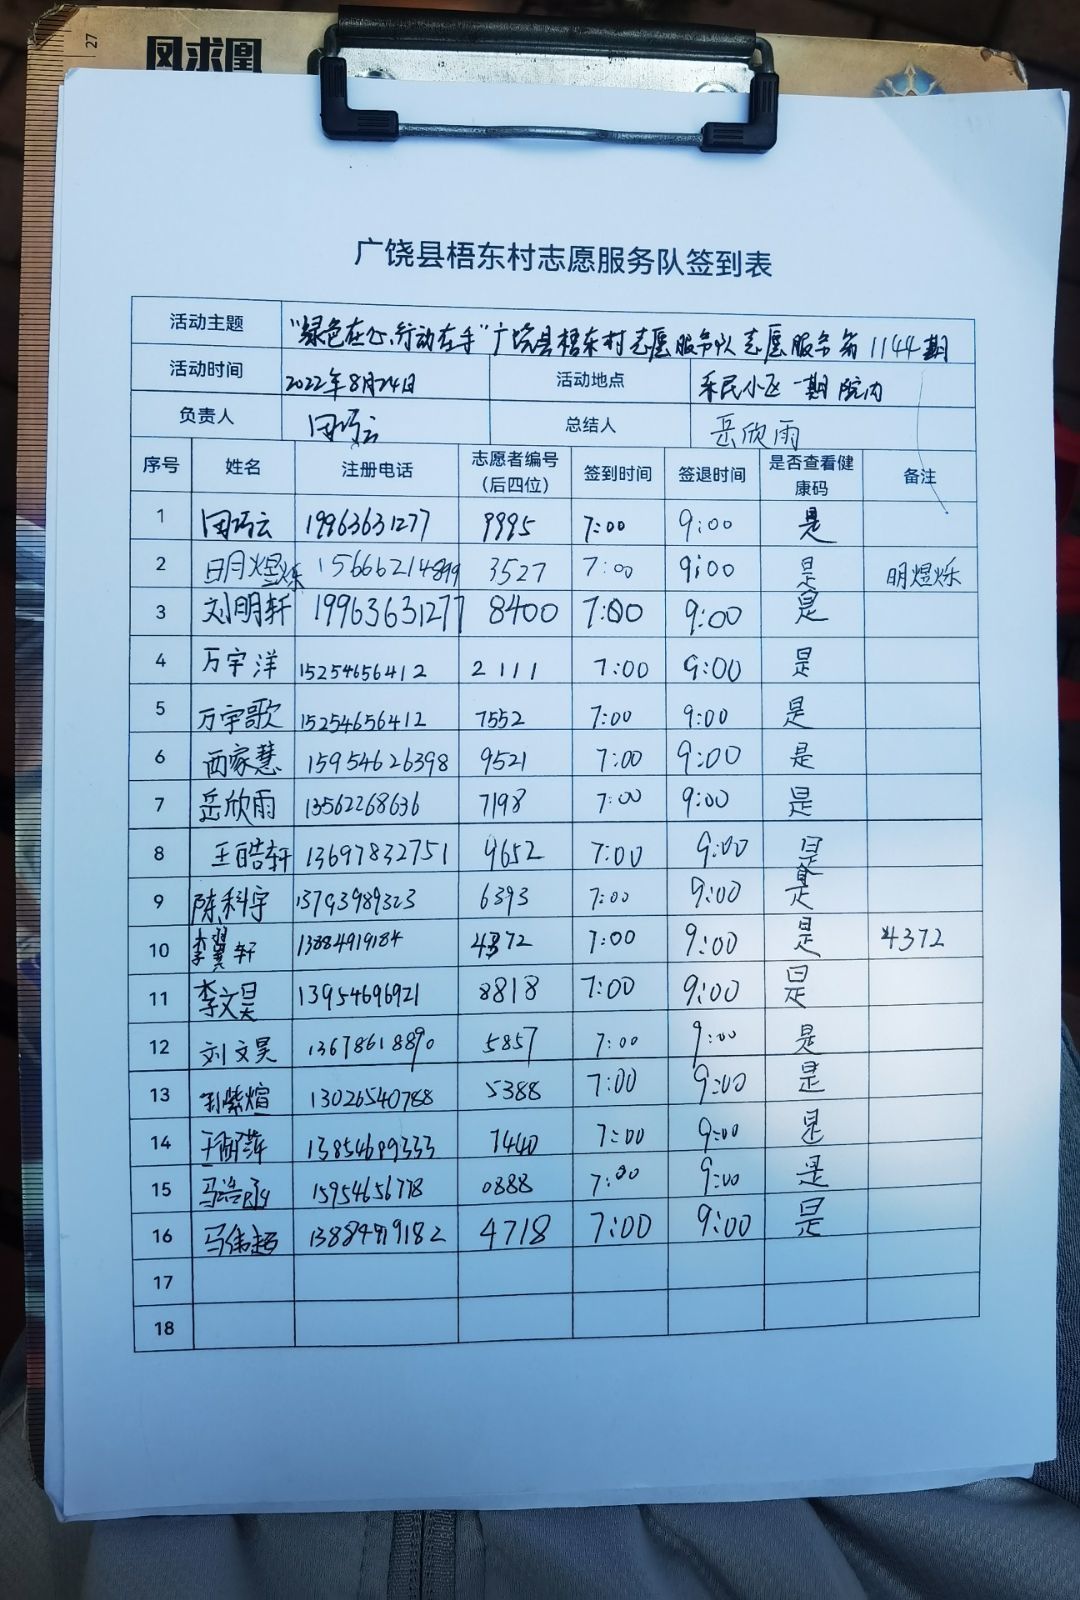 27
凤求凰
广饶县梧东村志愿服务队签到表
活动主题 "绿色在心,行动在手"广饶县梧东村志愿服务队志愿服务第1144期
活动时间 2022年8月24日 活动地点 乐民小区一期院内
负责人 田巧云 总结人 岳欣雨
序号 姓名 注册电话 志愿者编号(后四位) 签到时间 签退时间 是否查看健康码 备注
1 田巧云 19963631277 9995 7:00 9:00 是
2 明煜烁 15666214899 3527 7:00 9:00 是 明煜烁
3 刘明轩 19963631277 8400 7:00 9:00 是
4 万宇洋 15254656412 2111 7:00 9:00 是
5 万宇歌 15254656412 7552 7:00 9:00 是
6 西家慧 15954626398 9521 7:00 9:00 是
7 岳欣雨 13562268636 7198 7:00 9:00 是
8 王皓轩 13697832751 9652 7:00 9:00 是
9 陈科宇 13793989323 6393 7:00 9:00 是
10 李翼轩 13884919184 4372 7:00 9:00 是 4372
11 李文昊 13954696921 8818 7:00 9:00 是
12 刘文昊 13678618890 5857 7:00 9:00 是
13 刘紫煊 13026540788 5388 7:00 9:00 是
14 13854689333 7440 7:00 9:00 是
15 15954656778 0888 7:00 9:00 是
16 马伟超 13884919182 4718 7:00 9:00 是
17
18